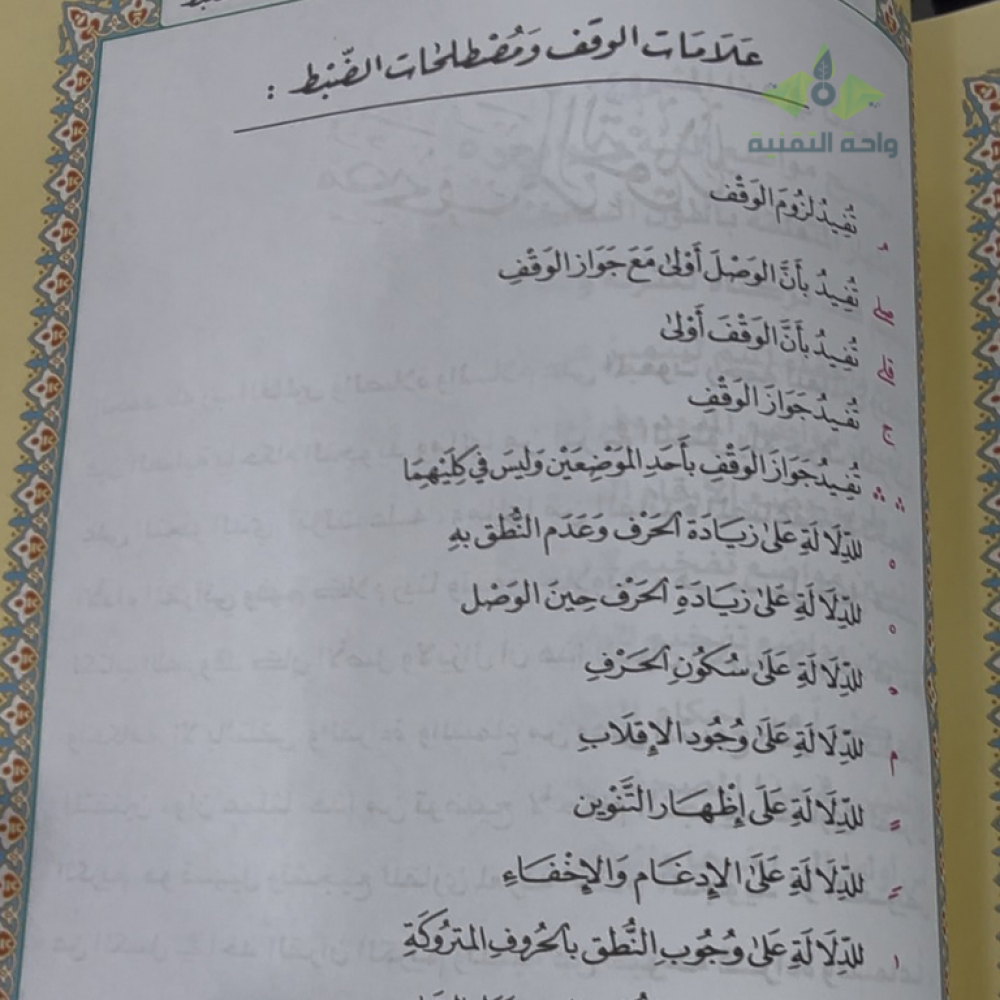 عَلَامَات الوَقف وَمُصْطَلحَات الضَّبْط :
واحة التقنية
م تُفِيدُ لُزُومَ الوَقْف
صلى تُفِيدُ بأَنَّ الوَصْلَ أَوْلىٰ مَعَ جَوَازِ الوَقْفِ
قلى تُفِيدُ بأَنَّ الوَقْفَ أَوْلىٰ
ج تُفِيدُ جَوَازَ الوَقْفِ
∴ ∴ تُفِيدُ جَوَازَ الوَقْفِ بأَحَدِ المَوْضِعَيْن وَلَيسَ في كِلَيْهِمَا
للدِّلَالَةِ عَلىٰ زيَادَة الحَرْف وَعَدَم النُّطْق بهِ
للدِّلَالَةِ عَلىٰ زيَادَةِ الحَرْف حِينَ الوَصْل
للدِّلَالَةِ عَلىٰ سُكُونِ الحَرْفِ
م للدِّلَالَةِ عَلىٰ وُجُود الإِقلَابِ
ـً للدِّلَالَةِ عَلىٰ إِظْهَار التَّنْوين
ـً للدِّلَالَةِ عَلىٰ الإِدغَام وَالإِخْفَاءِ
ا للدِّلَالَةِ عَلىٰ وُجُوب النُّطْق بالحُرُوفِ المَتْروُكَةِ